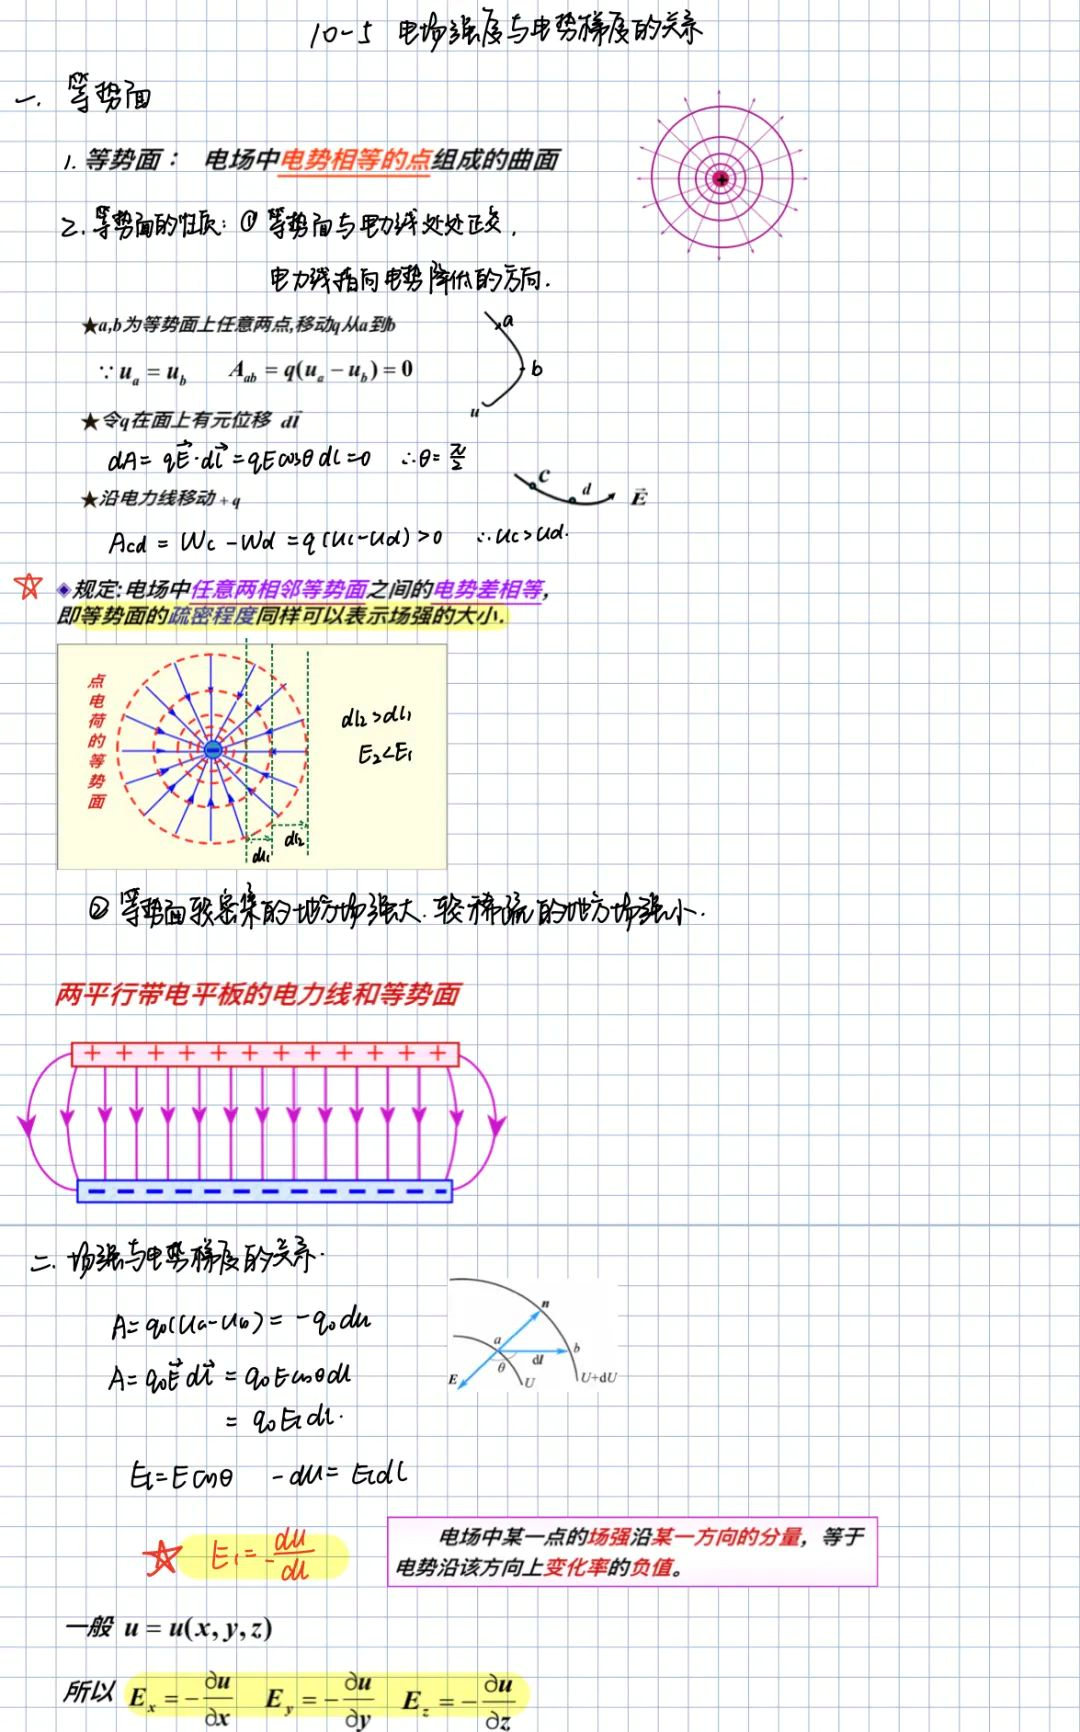 10-5 电场强度与电势梯度的关系
一. 等势面
1. 等势面： 电场中电势相等的点组成的曲面
+
2. 等势面的性质: ① 等势面与电力线处处正交,
电力线指向电势降低的方向.
★a,b为等势面上任意两点,移动q从a到b
a
∵ u_a = u_b A_ab = q(u_a − u_b) = 0
b
u
★令q在面上有元位移 dl⃗
dA = qE⃗·dl⃗ = qE cosθ dl = 0 ∴θ = π/2
c d E⃗
★沿电力线移动 +q
Acd = Wc − Wd = q(Uc−Ud) > 0 ∴Uc > Ud.
◈规定:电场中任意两相邻等势面之间的电势差相等,
即等势面的疏密程度同样可以表示场强的大小.
点电荷的等势面
dl₂ > dl₁
E₂ < E₁
dl₁ dl₂
② 等势面较密集的地方场强大. 较稀疏的地方场强小.
两平行带电平板的电力线和等势面
+ + + + + + + + + + + +
− − − − − − − − − − − −
二. 场强与电势梯度的关系.
A = q₀(Ua−Ub) = −q₀du
n
a b
dl
θ
E U U+dU
A = q₀E⃗ dl⃗ = q₀E cosθ dl
= q₀ E_l dl.
E_l = E cosθ −du = E_l dl
E_l = − du/dl
电场中某一点的场强沿某一方向的分量，等于
电势沿该方向上变化率的负值。
一般 u = u(x, y, z)
所以 E_x = −∂u/∂x E_y = −∂u/∂y E_z = −∂u/∂z